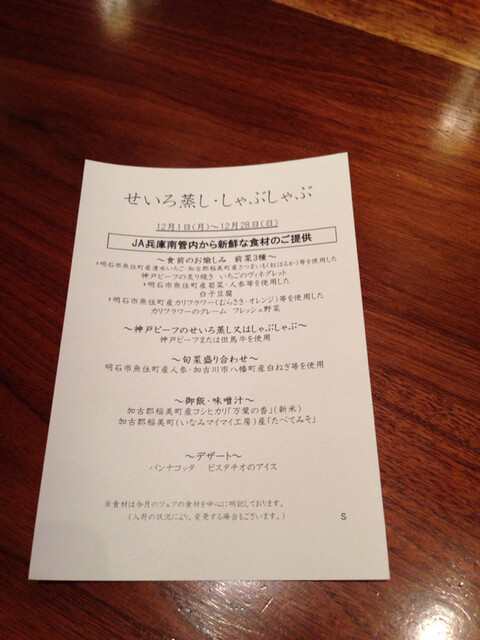 せいろ蒸し・しゃぶしゃぶ
12月1日(月)～12月28日(日)
JA兵庫南管内から新鮮な食材のご提供
～食前のお愉しみ 前菜3種～
*明石市魚住町産清水いちご・加古郡稲美町産さつまいも(ねはるか)等を使用した
神戸ビーフの炙り焼き いちごのヴィネグレット
*明石市魚住町産菊菜・人参等を使用した
白子豆腐
*明石市魚住町産カリフラワー(むらさき・オレンジ)等を使用した
カリフラワーのクレーム フレッシュ野菜
～神戸ビーフのせいろ蒸し又はしゃぶしゃぶ～
神戸ビーフまたは但馬牛を使用
～旬菜盛り合わせ～
明石市魚住町産人参・加古川市八幡町産白ねぎ等を使用
～御飯・味噌汁～
加古郡稲美町産コシヒカリ「万葉の香」(新米)
加古郡稲美町(いなみマイマイ工房)産「たべてみそ」
～デザート～
パンナコッタ ピスタチオのアイス
※食材は今月のフェアの食材を中心に明記しております。
(入荷の状況により、変更する場合もございます。)
S